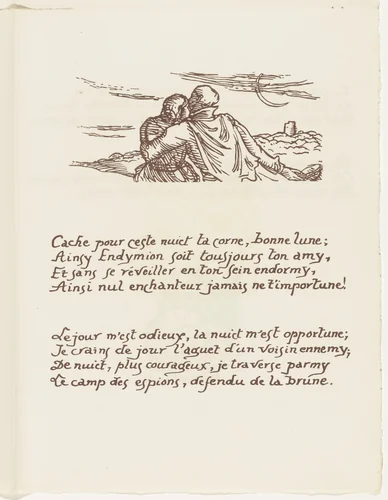 Cache pour ceste nuict ta corne, bonne lune;
Ainsy Endymion soit tousjours ton amy,
Et sans se réveiller en ton sein endormy,
Ainsi nul enchanteur jamais ne t'importune!
Le jour m'est odieux, la nuict m'est opportune;
Je crains de jour l'aguet d'un voisin ennemy;
De nuict, plus courageux, je traverse parmy
Le camp des espions, defendu de la brune.